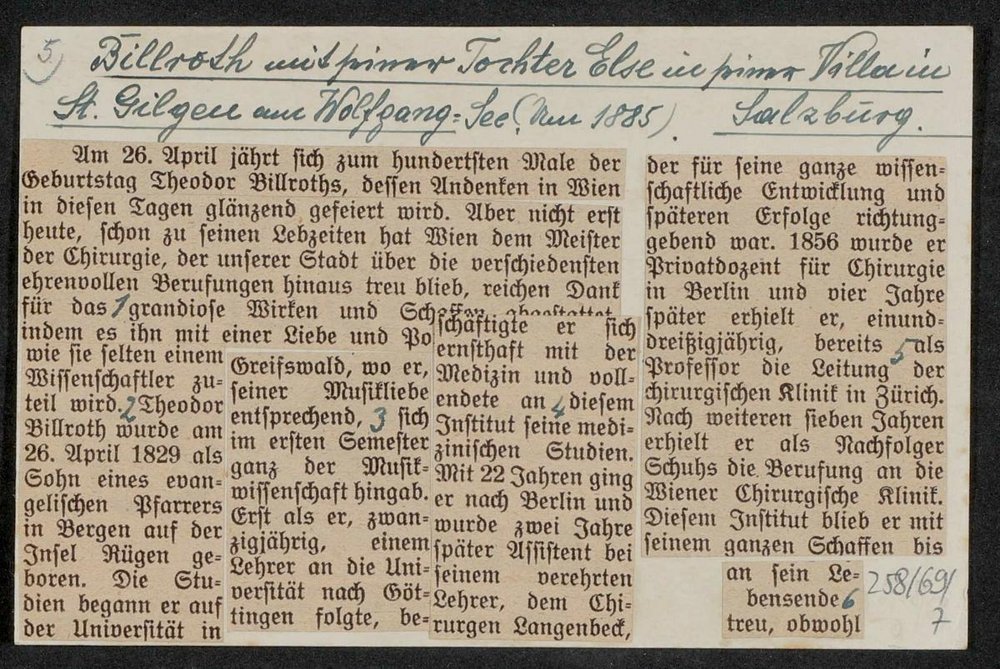 5)
Billroth mit seiner Tochter Else in seiner Villa in
St. Gilgen am Wolfgang-See (Um 1885). Salzburg.
Am 26. April jährt sich zum hundertsten Male der
Geburtstag Theodor Billroths, dessen Andenken in Wien
in diesen Tagen glänzend gefeiert wird. Aber nicht erst
heute, schon zu seinen Lebzeiten hat Wien dem Meister
der Chirurgie, der unserer Stadt über die verschiedensten
ehrenvollen Berufungen hinaus treu blieb, reichen Dank
für das 1 grandiose Wirken und Schaffen abgestattet
indem es ihn mit einer Liebe und Po
wie sie selten einem
Wissenschaftler zu-
teil wird. 2 Theodor
Billroth wurde am
26. April 1829 als
Sohn eines evan-
gelischen Pfarrers
in Bergen auf der
Insel Rügen ge-
boren. Die Stu-
dien begann er auf
der Universität in
Greifswald, wo er,
seiner Musikliebe
entsprechend, 3 sich
im ersten Semester
ganz der Musik-
wissenschaft hingab.
Erst als er, zwan-
zigjährig, einem
Lehrer an die Uni-
versität nach Göt-
tingen folgte, be-
schäftigte er sich
ernsthaft mit der
Medizin und voll-
endete an 4 diesem
Institut seine medi-
zinischen Studien.
Mit 22 Jahren ging
er nach Berlin und
wurde zwei Jahre
später Assistent bei
seinem verehrten
Lehrer, dem Chi-
rurgen Langenbeck,
der für seine ganze wissen-
schaftliche Entwicklung und
späteren Erfolge richtung-
gebend war. 1856 wurde er
Privatdozent für Chirurgie
in Berlin und vier Jahre
später erhielt er, einund-
dreißigjährig, bereits 5 als
Professor die Leitung der
chirurgischen Klinik in Zürich.
Nach weiteren sieben Jahren
erhielt er als Nachfolger
Schuhs die Berufung an die
Wiener Chirurgische Klinik.
Diesem Institut blieb er mit
seinem ganzen Schaffen bis
an sein Le-
bensende 6
treu, obwohl
258/69/
7